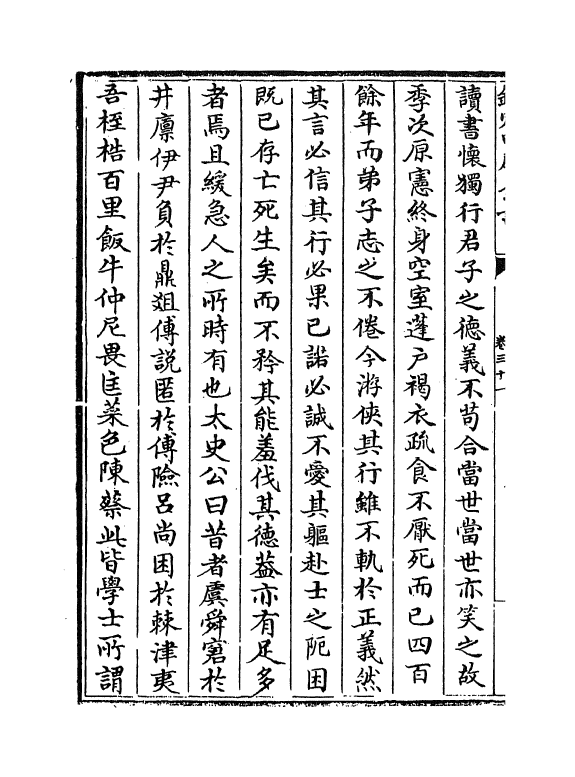 讀書懷獨行君子之徳義不苟合當世當世亦笑之故
季次原憲終身空室蓬户褐衣疏食不厭死而已四百
餘年而弟子志之不倦今游俠其行雖不軌於正義然
其言必信其行必果已諾必誠不愛其軀赴士之阨困
既已存亡死生矣而不矜其能羞伐其徳葢亦有足多
者焉且緩急人之所時有也太史公曰昔者虞舜窘於
井廩伊尹負於鼎爼傅説匿於傅險吕尚困於棘津夷
吾桎梏百里飯牛仲尼畏匡菜色陳蔡此皆學士所謂
卷三十一